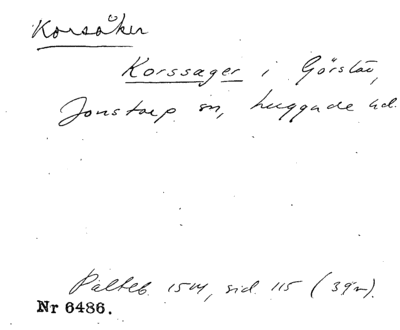 Korsåker
Korssager i Görslöv,
Jonstorp sn, Luggude hd.
Palteb. 1514, sid. 115 (39r).
Nr 6486.